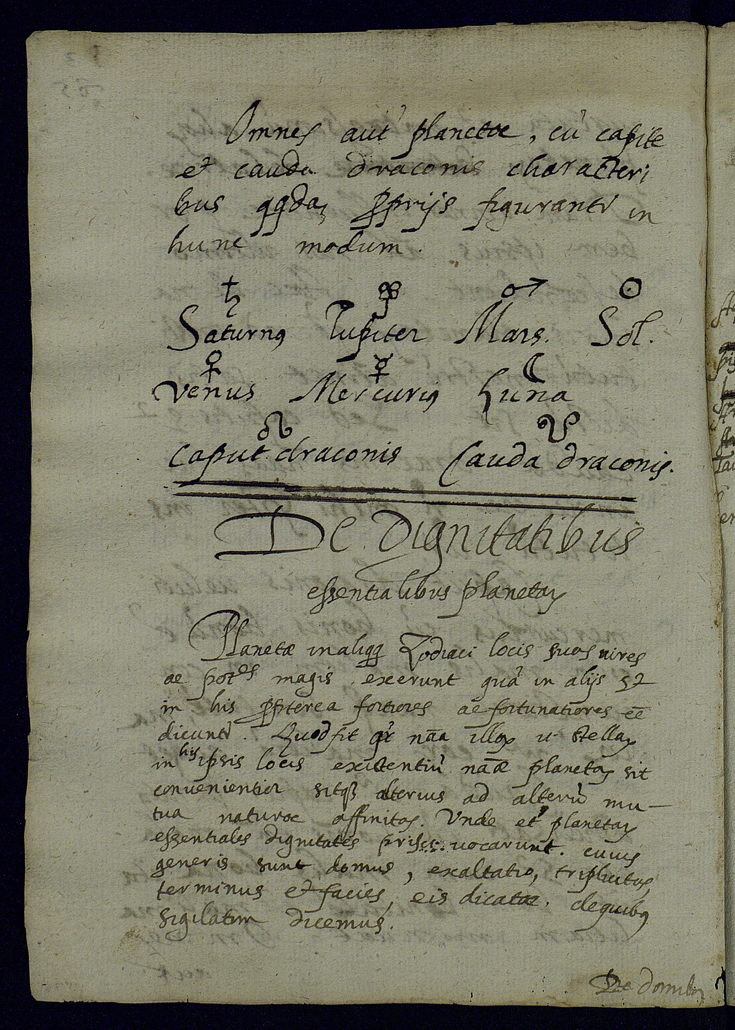 Omnes aut planetæ, cū capite
et cauda draconis characteri
bus qqdaȝ ꝓprijs figurantr in
hunc modum.
♄ ♃ ♂ ☉
Saturnꝰ Iupiter Mars. Sol.
♀ ☿ ☾
Venus Mercuriꝰ Luna
☊ ☋
Caput draconis Cauda draconis.
De Dignitatibus
essentialibus planetaꝝ
Planetæ in aliqq Zodiaci locis suas uires
ac potes magis exerunt quā in alijs
in his ꝓpterea fortiores ac fortunatiores ēē
dicuntr. Quod fit naā illoꝝ stellaꝝ
in his ipsis locis existentiū naæ planetaꝝ sit
convenientior sitqꝫ alterius ad alterū mu-
tua naturæ affinitas. Unde et planetaꝝ
essentiales dignitates uocarunt. cuius
generis sunt domus, exaltatio, triplicitas
terminus et facies, eis dicatæ. de quibꝰ
sigilatim dicemus.
De domibꝰ